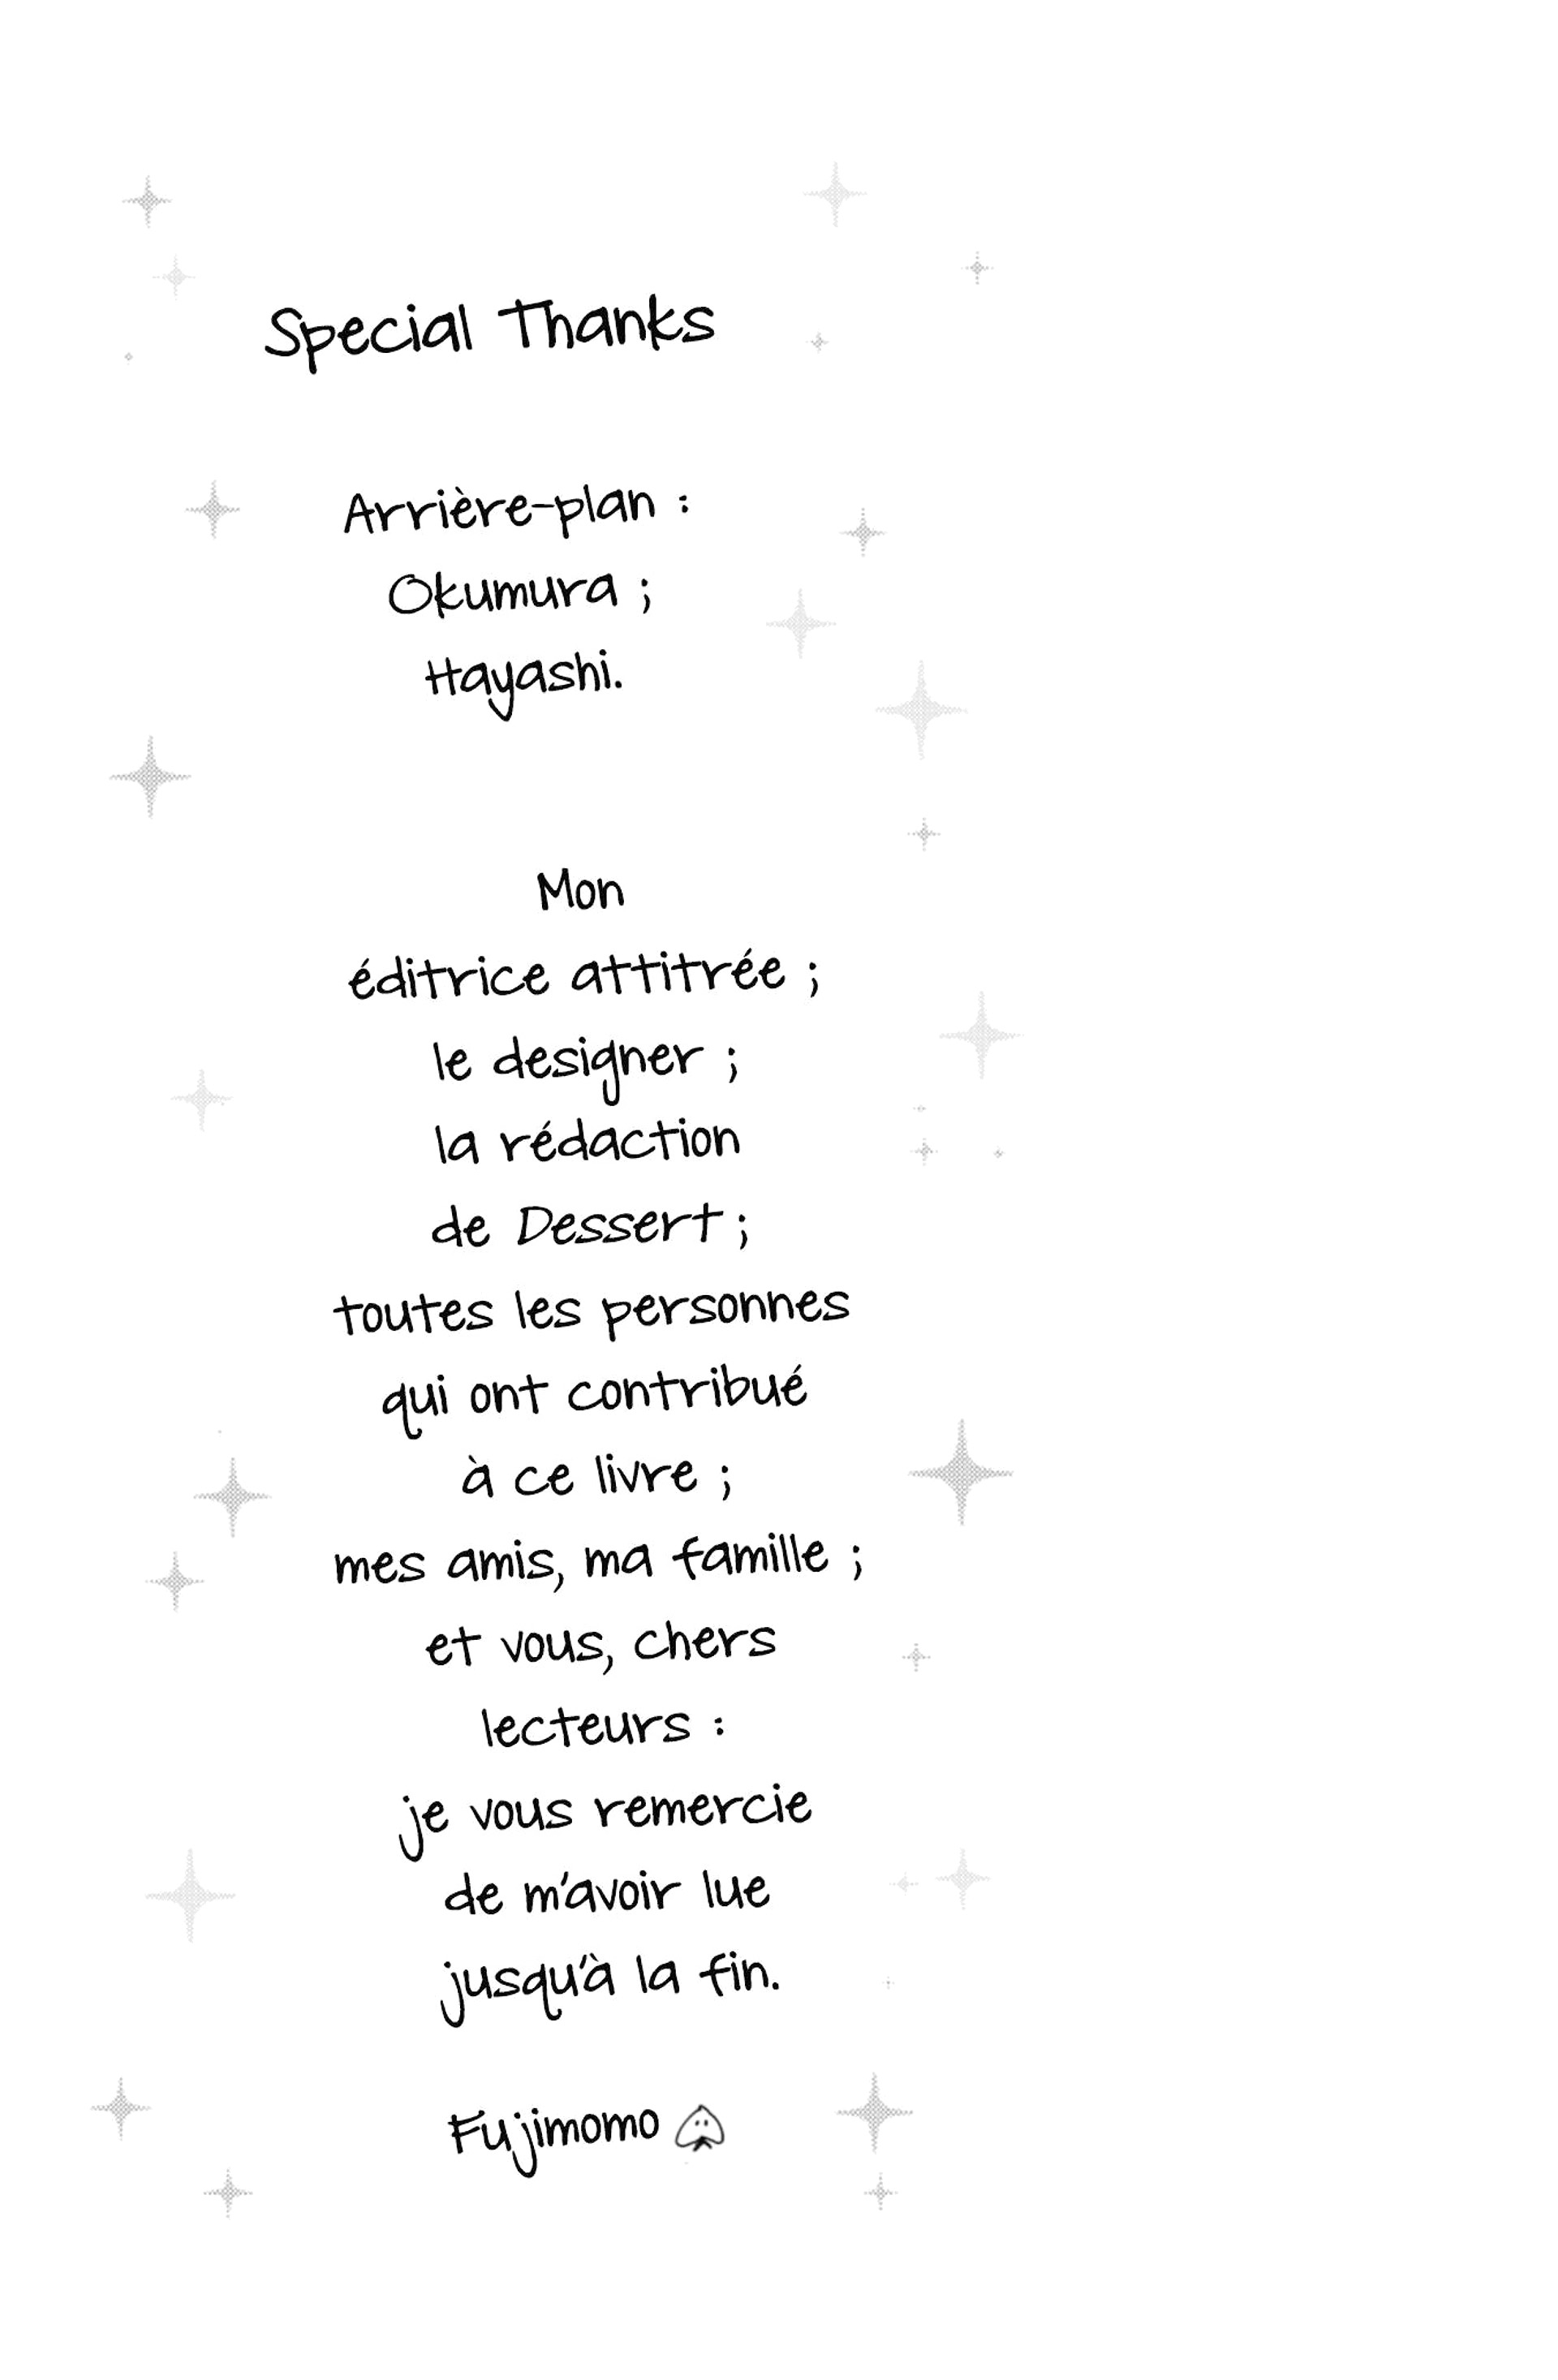 Special Thanks
Arrière-plan :
Okumura ;
Hayashi.
Mon
éditrice attitrée ;
le designer ;
la rédaction
de Dessert ;
toutes les personnes
qui ont contribué
à ce livre ;
mes amis, ma famille ;
et vous, chers
lecteurs :
je vous remercie
de m'avoir lue
jusqu'à la fin.
Fujimomo